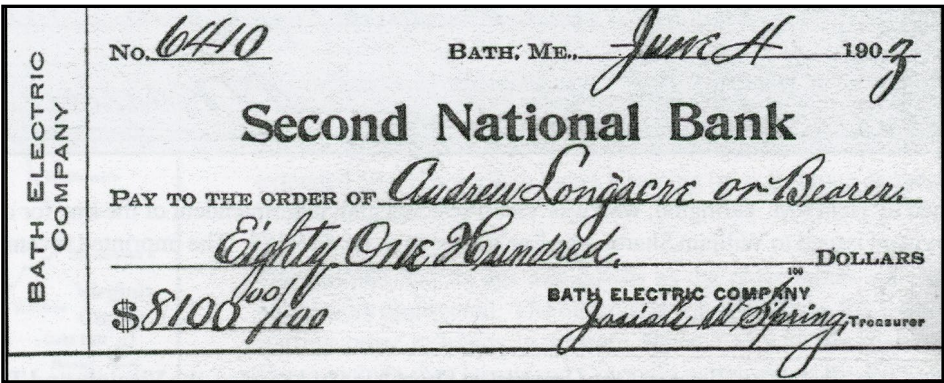 BATH ELECTRIC
COMPANY
No. 6410 BATH, ME., June 4 1903
Second National Bank
PAY TO THE ORDER OF Andrew Longacre or Bearer.
Eighty One Hundred. DOLLARS
100
$8100 00/100 BATH ELECTRIC COMPANY
W Spring, Treasurer